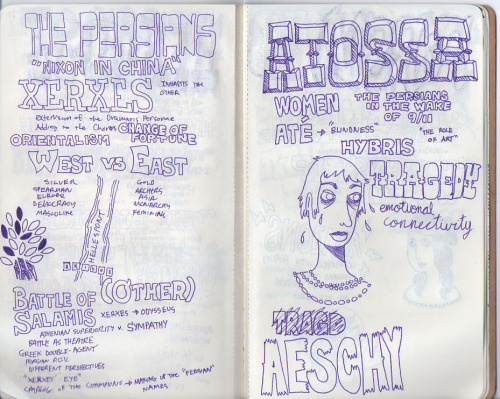 THE PERSIANS
"NIXON IN CHINA"
XERXES
INHABITS THE
OTHER
Extension of the Dramatis Personae
Adding to the Chorus
CHANGE OF
FORTUNE
ORIENTALISM
WEST vs EAST
SILVER
SPEARMAN
EUROPE
DEMOCRACY
MASCULINE
HELLESPONT
BRIDGE
GOLD
ARCHERS
ASIA
MONARCHY
FEMININE
BATTLE OF
SALAMIS
(OTHER)
XERXES → ODYSSEUS
ATHENIAN SUPERIORITY v. SYMPATHY
BATTLE AS THEATRE
GREEK DOUBLE-AGENT
PERSIAN P.O.V.
DIFFERENT PERSPECTIVES
"XERXES' EYE"
CATALOG OF THE COMPANIONS → MAKING UP THE "PERSIAN"
NAMES
ATOSSA
WOMEN
THE PERSIANS
IN THE WAKE
OF 9/11
ATÉ → "BLINDNESS"
"THE ROLE
OF ART"
HYBRIS
TRAGEDY
emotional
connectivity
TRAGD
AESCHY